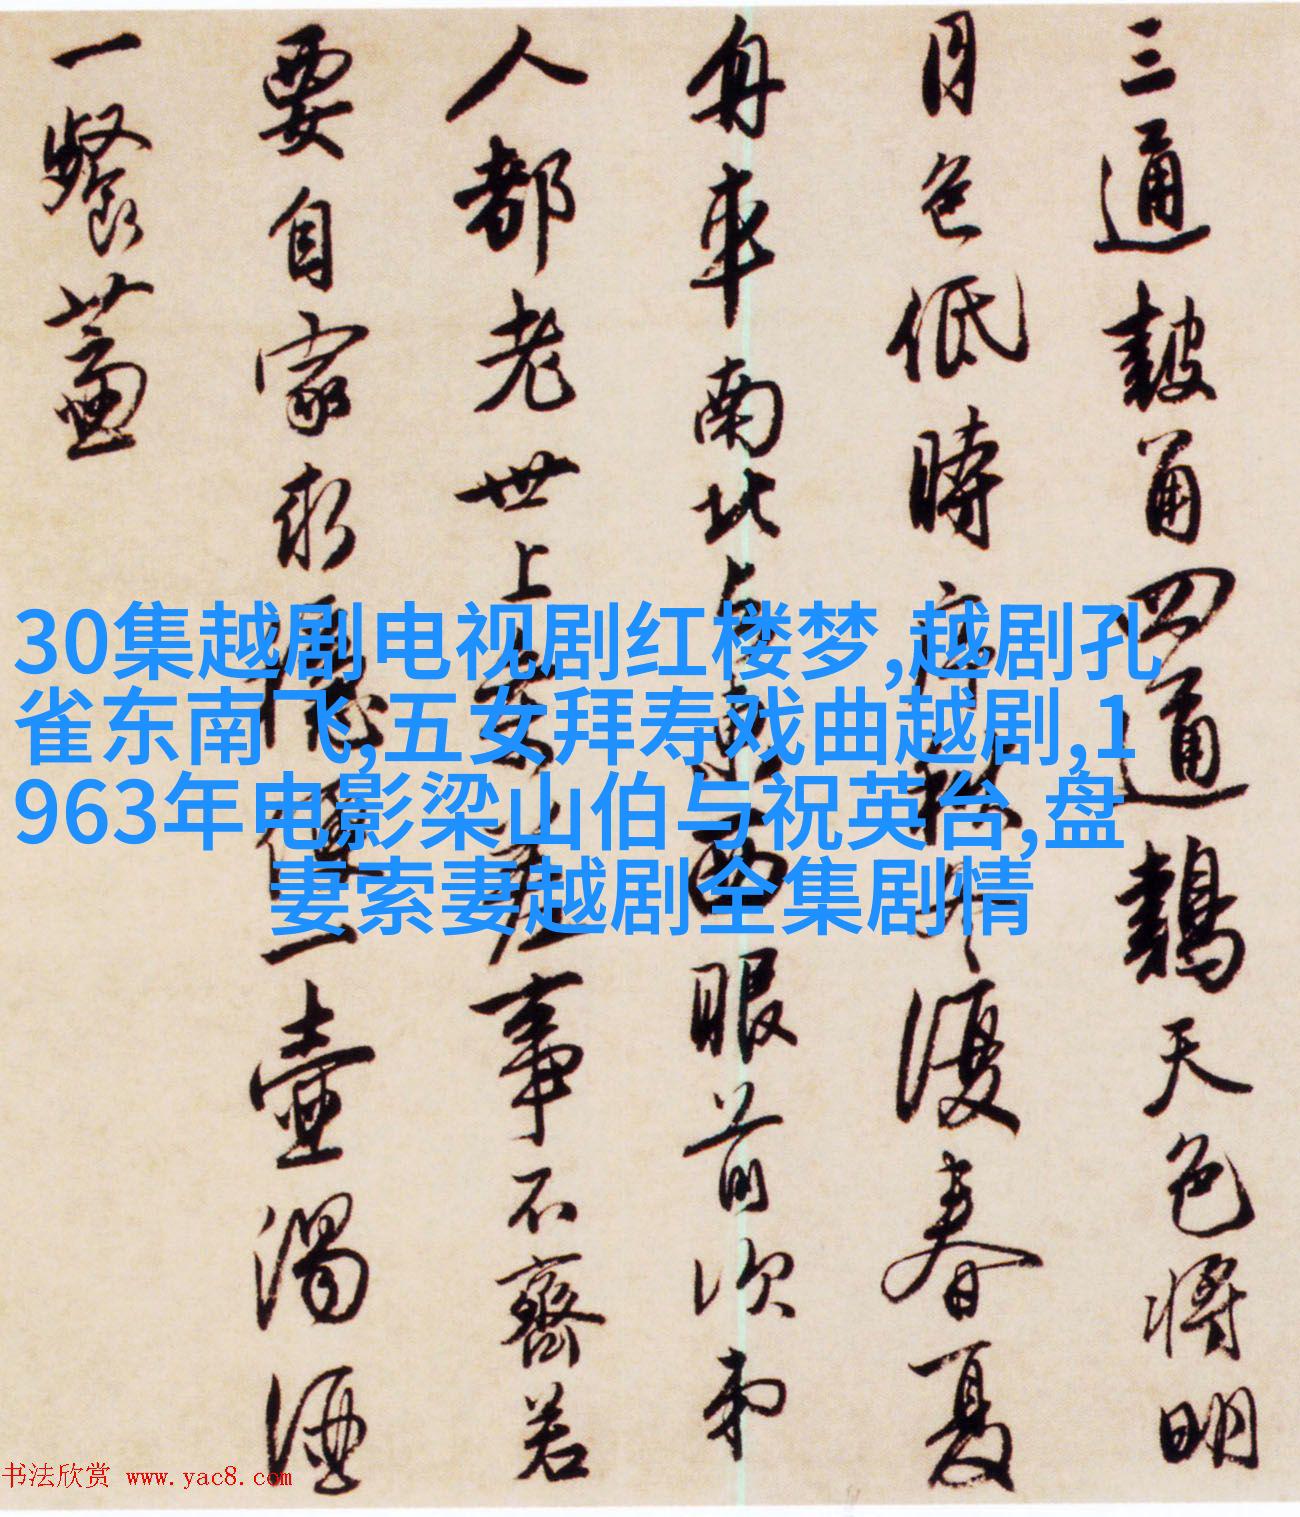 三通皷角四通鷄天色將明
月色低時序秋冬復春夏
舟車南北与東西眼前次弟
人都老世上事不齊若
要自家求便一壺濁酒
一餐
30集越剧电视剧红楼梦,越剧孔
雀东南飞,五女拜寿戏曲越剧,1
963年电影梁山伯与祝英台,盘
妻索妻越剧全集剧情
书法欣赏 www.yac8.com